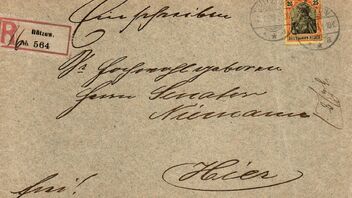 Einschreiben
R Bützow.
No 564
25 25
Sr Hochwohlgeboren
Herrn Senator
Niemann
Hier
frei!